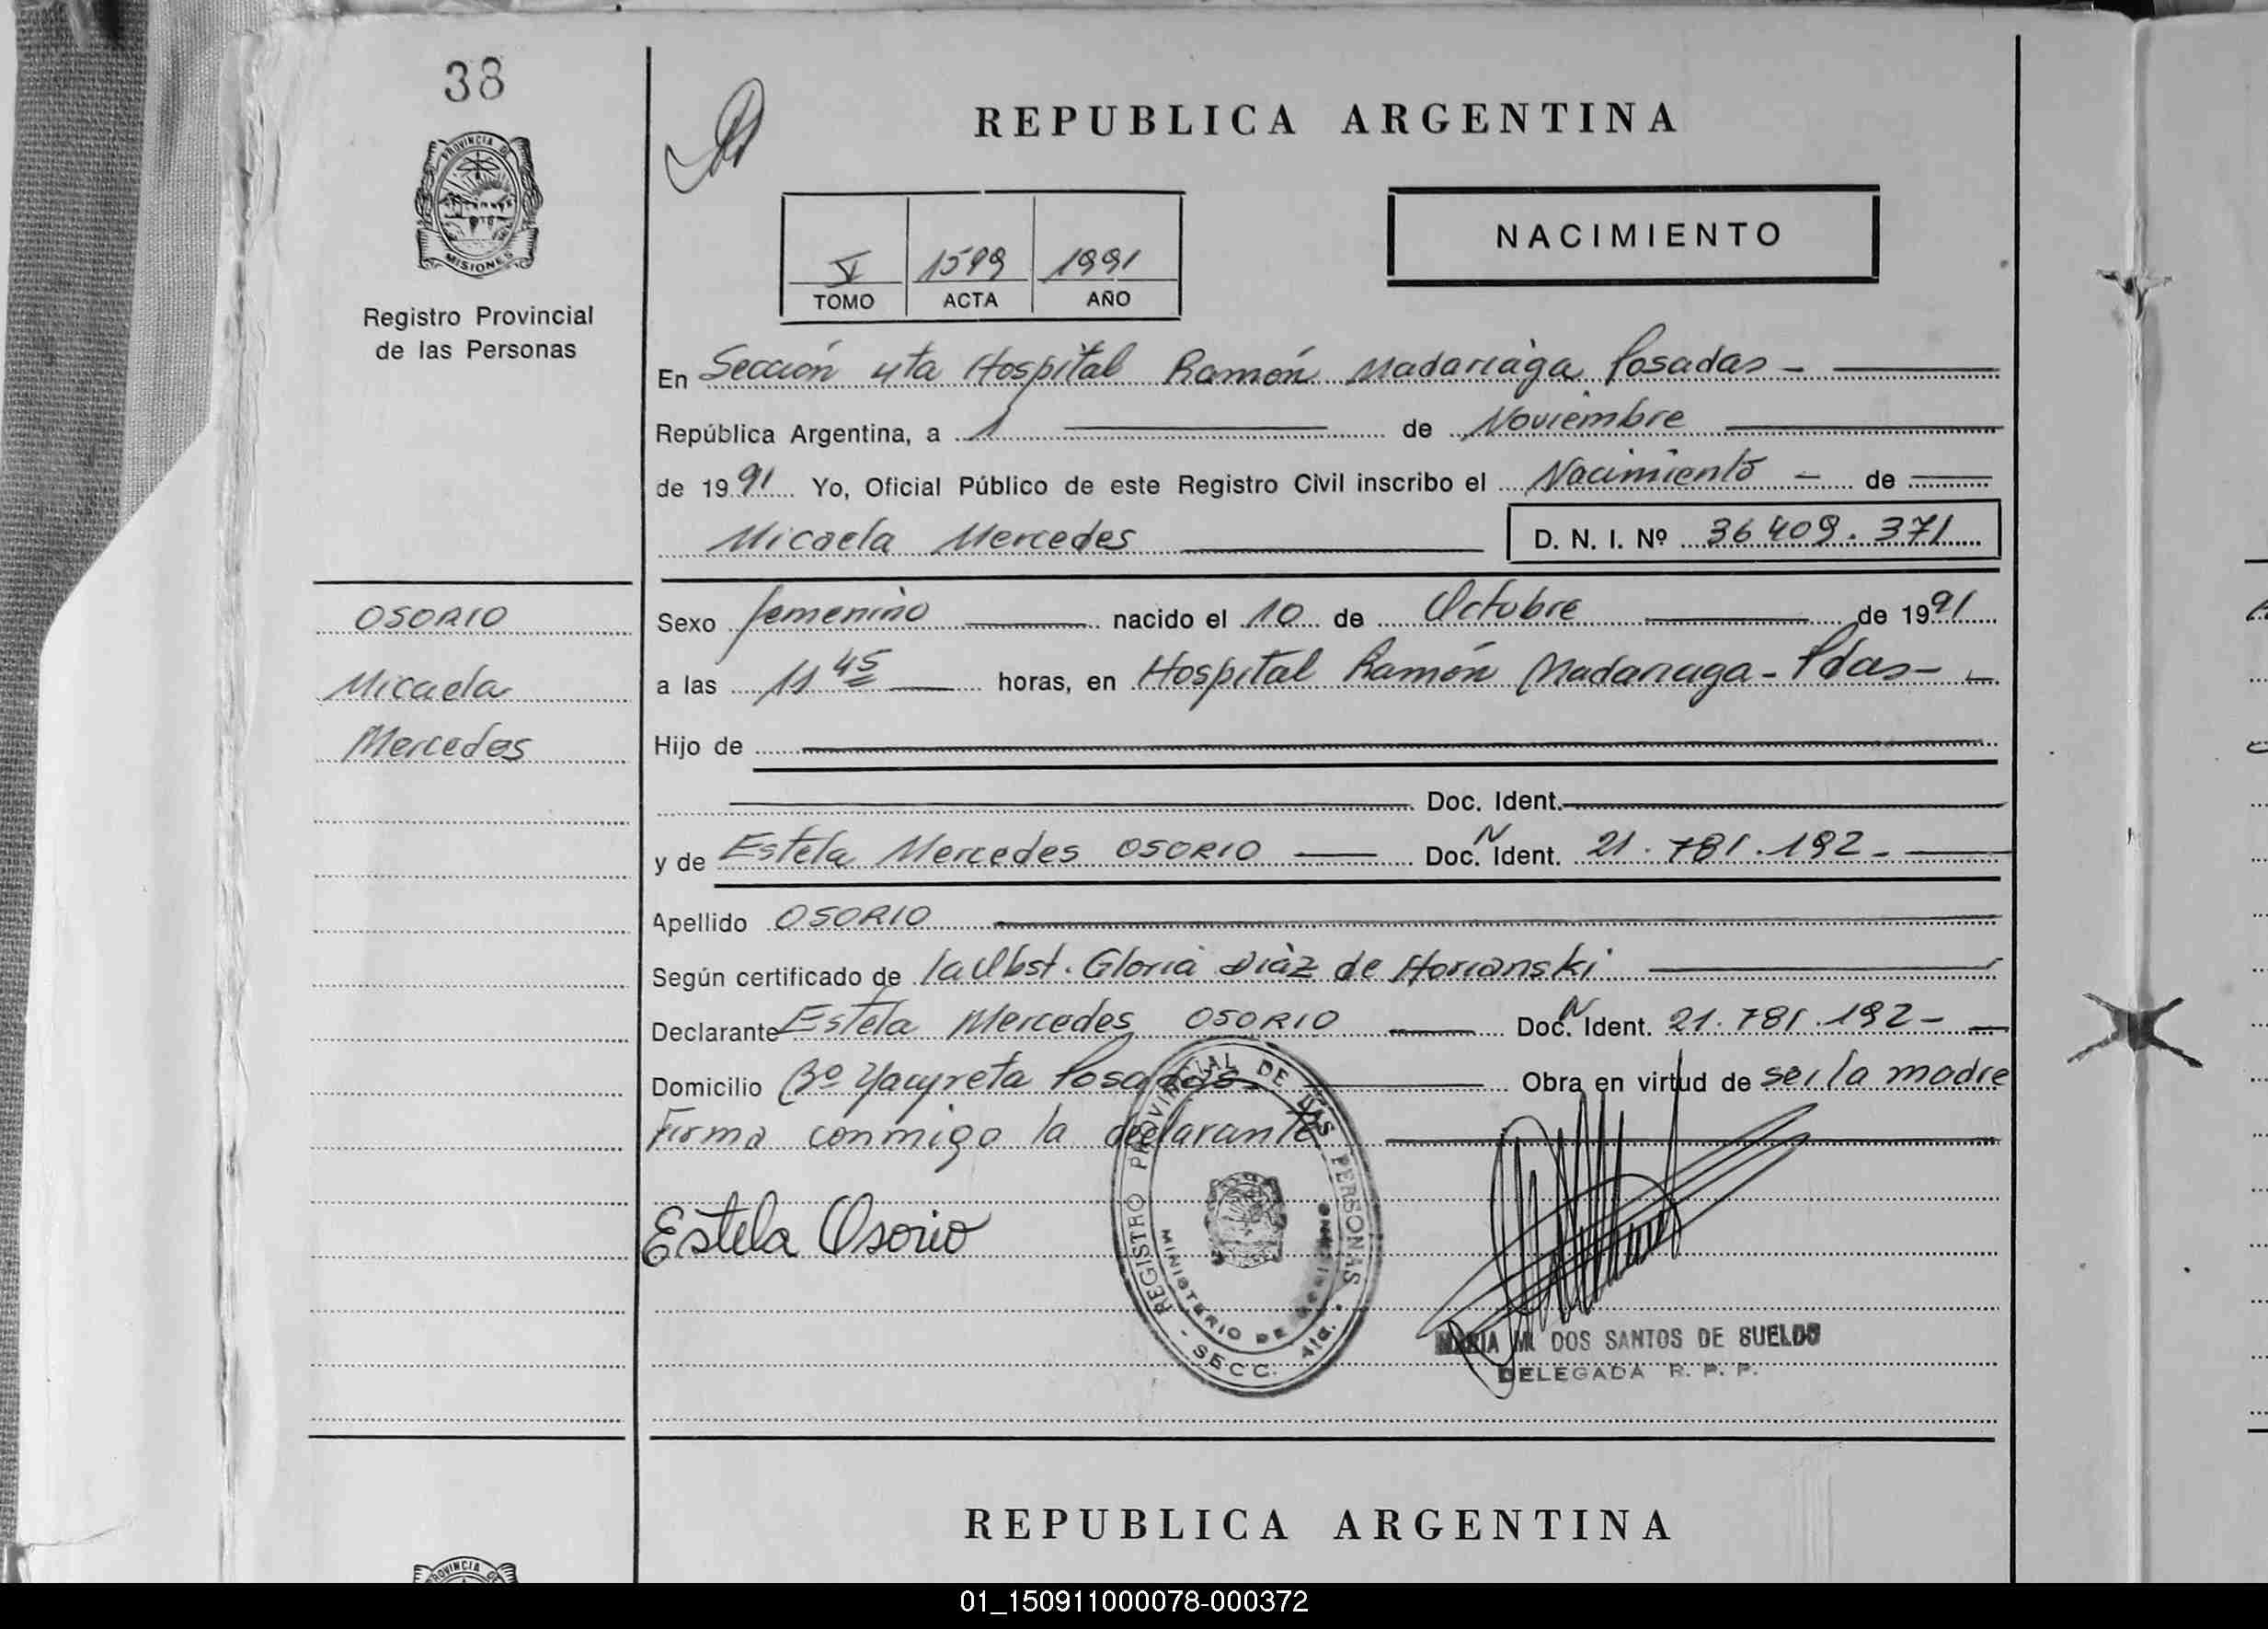 38
PROVINCIA DE
MISIONES
Registro Provincial
de las Personas
REPUBLICA ARGENTINA
NACIMIENTO
V 1599 1991
TOMO ACTA AÑO
En Sección 4ta Hospital Ramón Madariaga Posadas -
República Argentina, a 1 de Noviembre
de 1991 Yo, Oficial Público de este Registro Civil inscribo el Nacimiento - de
Micaela Mercedes D. N. I. Nº 36409.371
OSORIO
Micaela
Mercedes
Sexo femenino nacido el 10 de Octubre de 1991
a las 11 45 horas, en Hospital Ramón Madariaga - Pdas -
Hijo de
Doc. Ident.
y de Estela Mercedes OSORIO Doc. N Ident. 21.781.192 -
Apellido OSORIO
Según certificado de la Obst. Gloria Diàz de Horianski
Declarante Estela Mercedes OSORIO Doc. N Ident. 21.781.192 -
Domicilio Bº Yacyreta Posadas - Obra en virtud de ser la madre
Firma conmigo la declarante
Estela Osorio
REGISTRO PROVINCIAL DE LAS PERSONAS
MINISTERIO DE
- SECC. 4ta. -
MARIA M. DOS SANTOS DE SUELDO
DELEGADA R. P. P.
REPUBLICA ARGENTINA
PROVINCIA DE
01_150911000078-000372